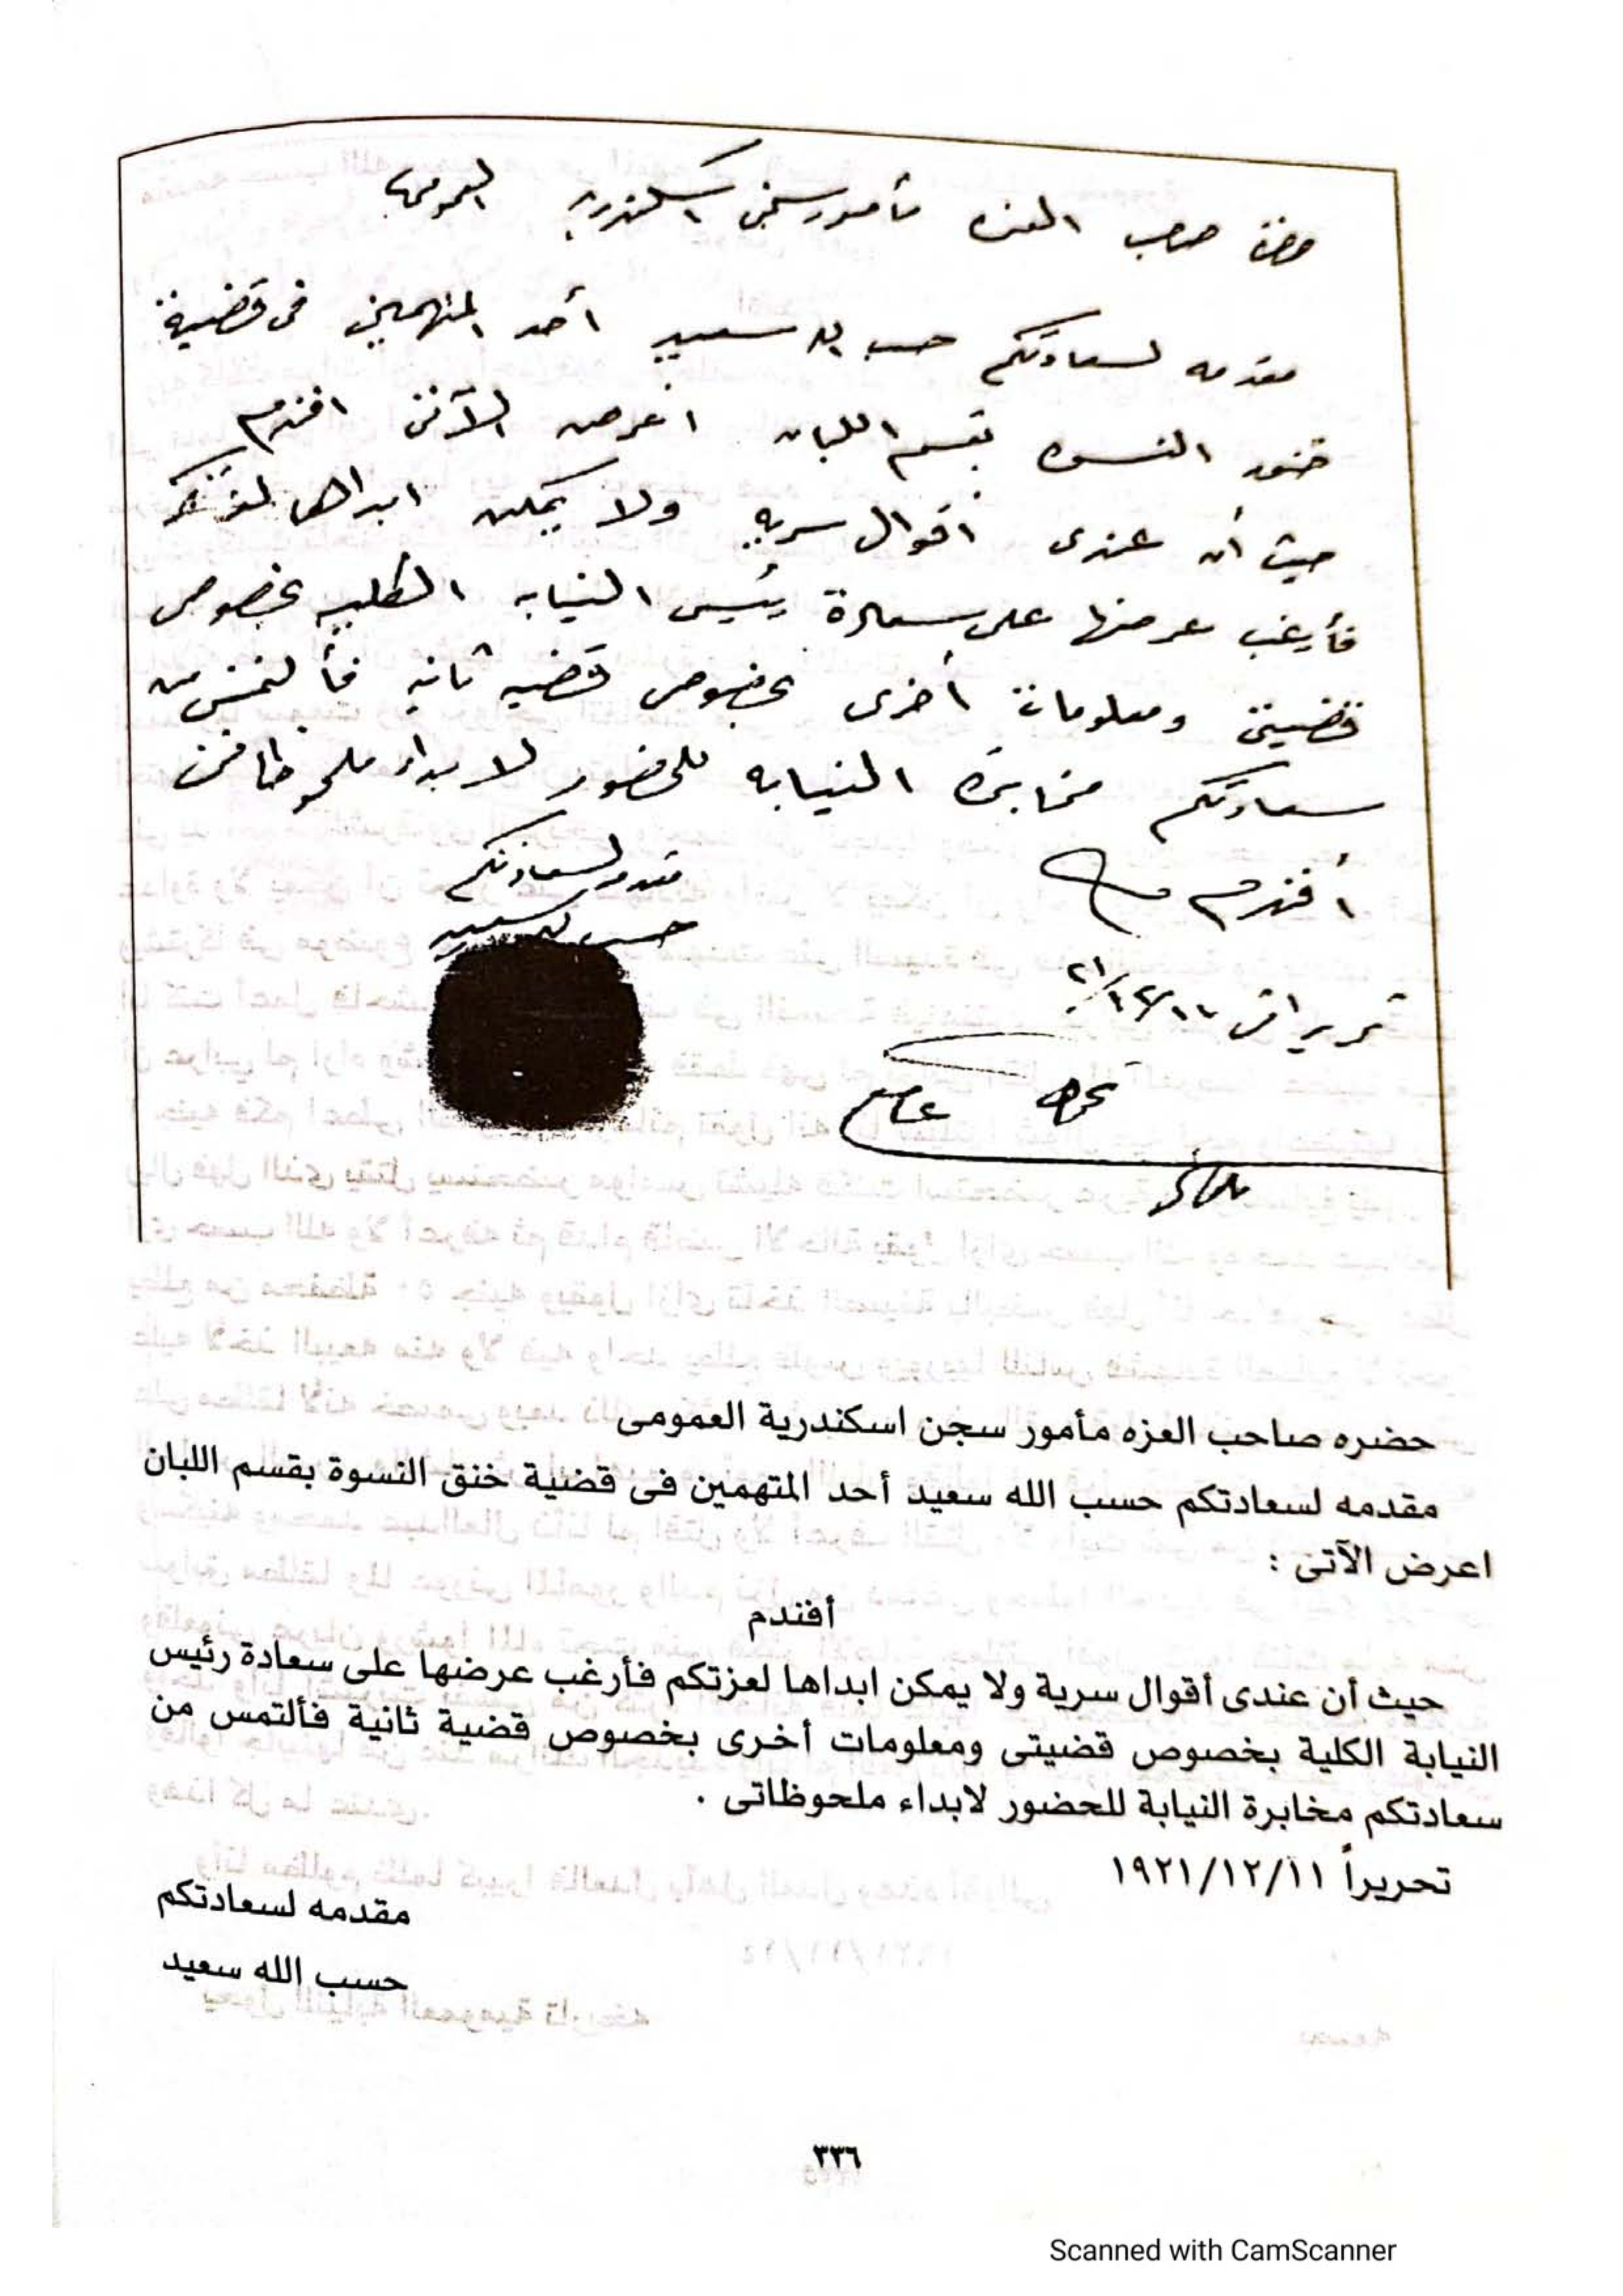 حضرة صاحب العزه مأمور سجن اسكندريه العمومى
مقدمه لسعادتكم حسب الله سعيد أحد المتهمين فى قضية
خنق النسوه بقسم اللبان اعرض الآتى افندم
حيث أن عندى أقوال سريه ولا يمكن ابداها لعزتكم
فأرغب عرضها على سعادة رئيس النيابه الكليه بخصوص
قضيتى ومعلومات أخرى بخصوص قضيه ثانيه فألتمس من
سعادتكم مخابرة النيابه للحضور لابداء ملحوظاتى
أفندم
مقدمه لسعادتكم
حسب الله سعيد
تحريرا فى
حضره صاحب العزه مأمور سجن اسكندرية العمومى
مقدمه لسعادتكم حسب الله سعيد أحد المتهمين فى قضية خنق النسوة بقسم اللبان
اعرض الآتى :
أفندم
حيث أن عندى أقوال سرية ولا يمكن ابداها لعزتكم فأرغب عرضها على سعادة رئيس
النيابة الكلية بخصوص قضيتى ومعلومات أخرى بخصوص قضية ثانية فألتمس من
سعادتكم مخابرة النيابة للحضور لابداء ملحوظاتى .
تحريراً ١٩٢١/١٢/١١
مقدمه لسعادتكم
حسب الله سعيد
٣٣٦
Scanned with CamScanner